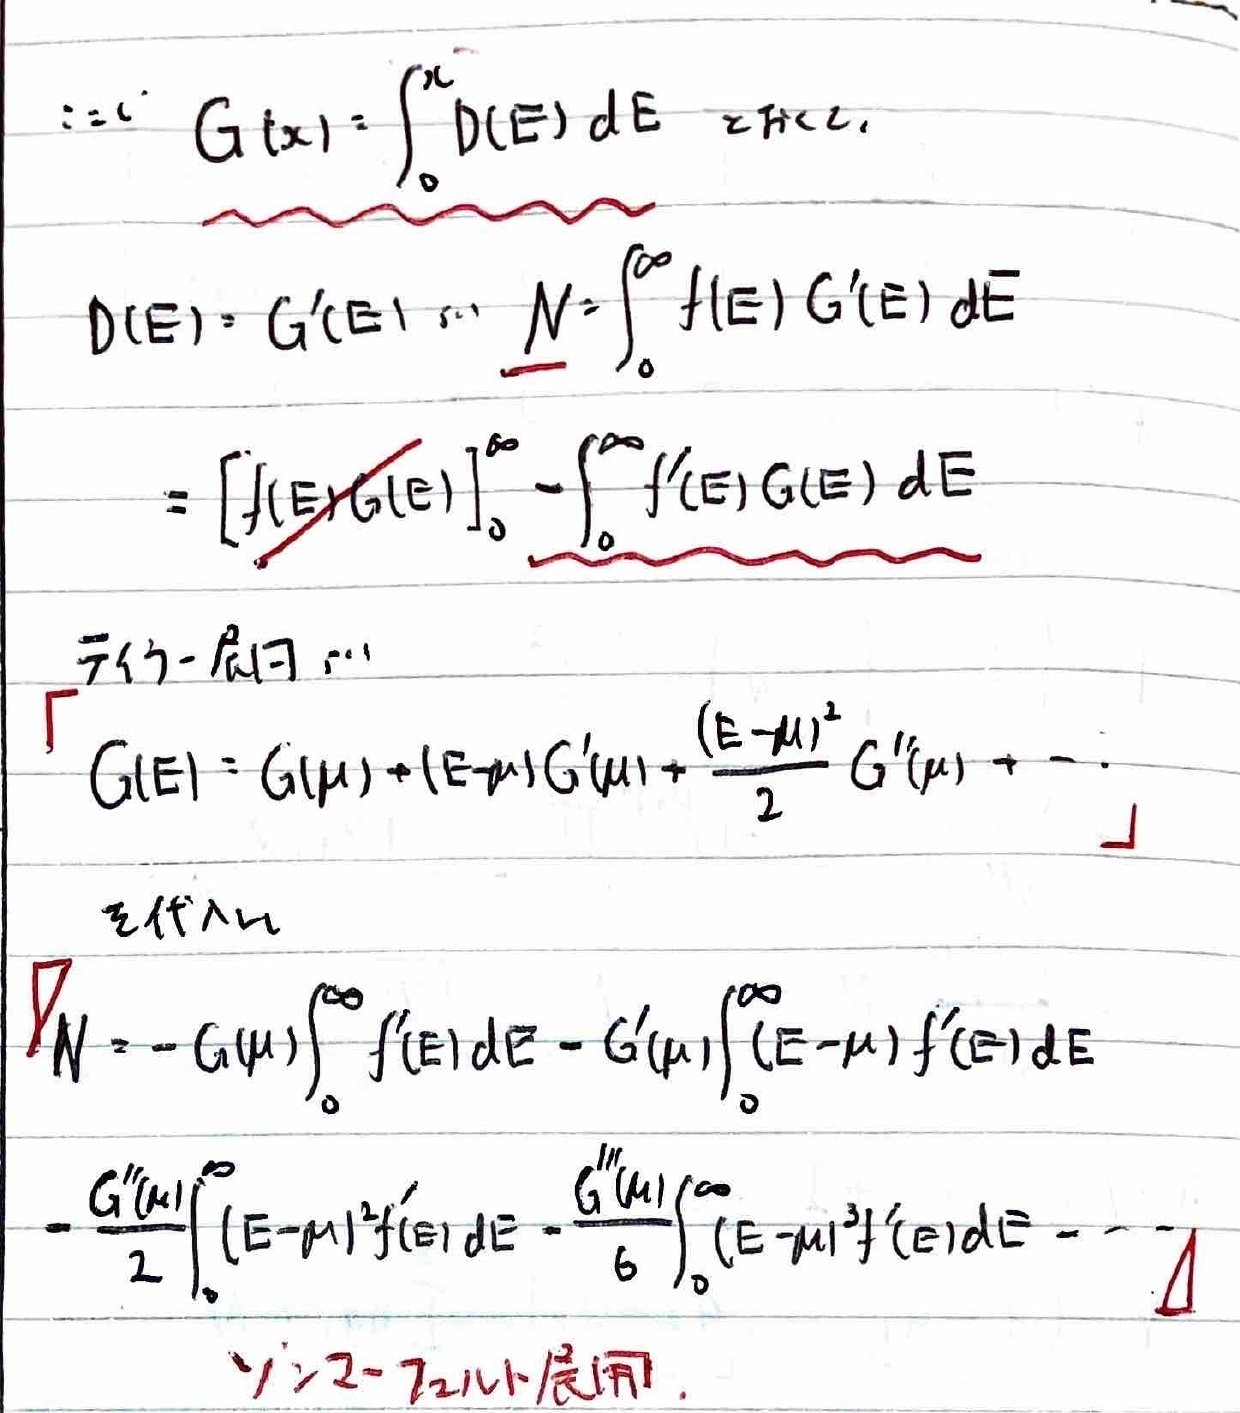 ここで G(x) = ∫₀ˣ D(E) dE とおくと、
D(E) = G'(E) … N = ∫₀^∞ f(E) G'(E) dE
= [f(E)G(E)]₀^∞ - ∫₀^∞ f'(E) G(E) dE
テイラー展開 …
「G(E) = G(μ) + (E-μ)G'(μ) + (E-μ)²/2 G''(μ) + - ・」
を代入し
『N = -G(μ)∫₀^∞ f'(E)dE - G'(μ)∫₀^∞ (E-μ) f'(E)dE
- G''(μ)/2 ∫₀^∞ (E-μ)² f'(E)dE - G'''(μ)/6 ∫₀^∞ (E-μ)³ f'(E)dE - - -』
ゾンマーフェルト展開.